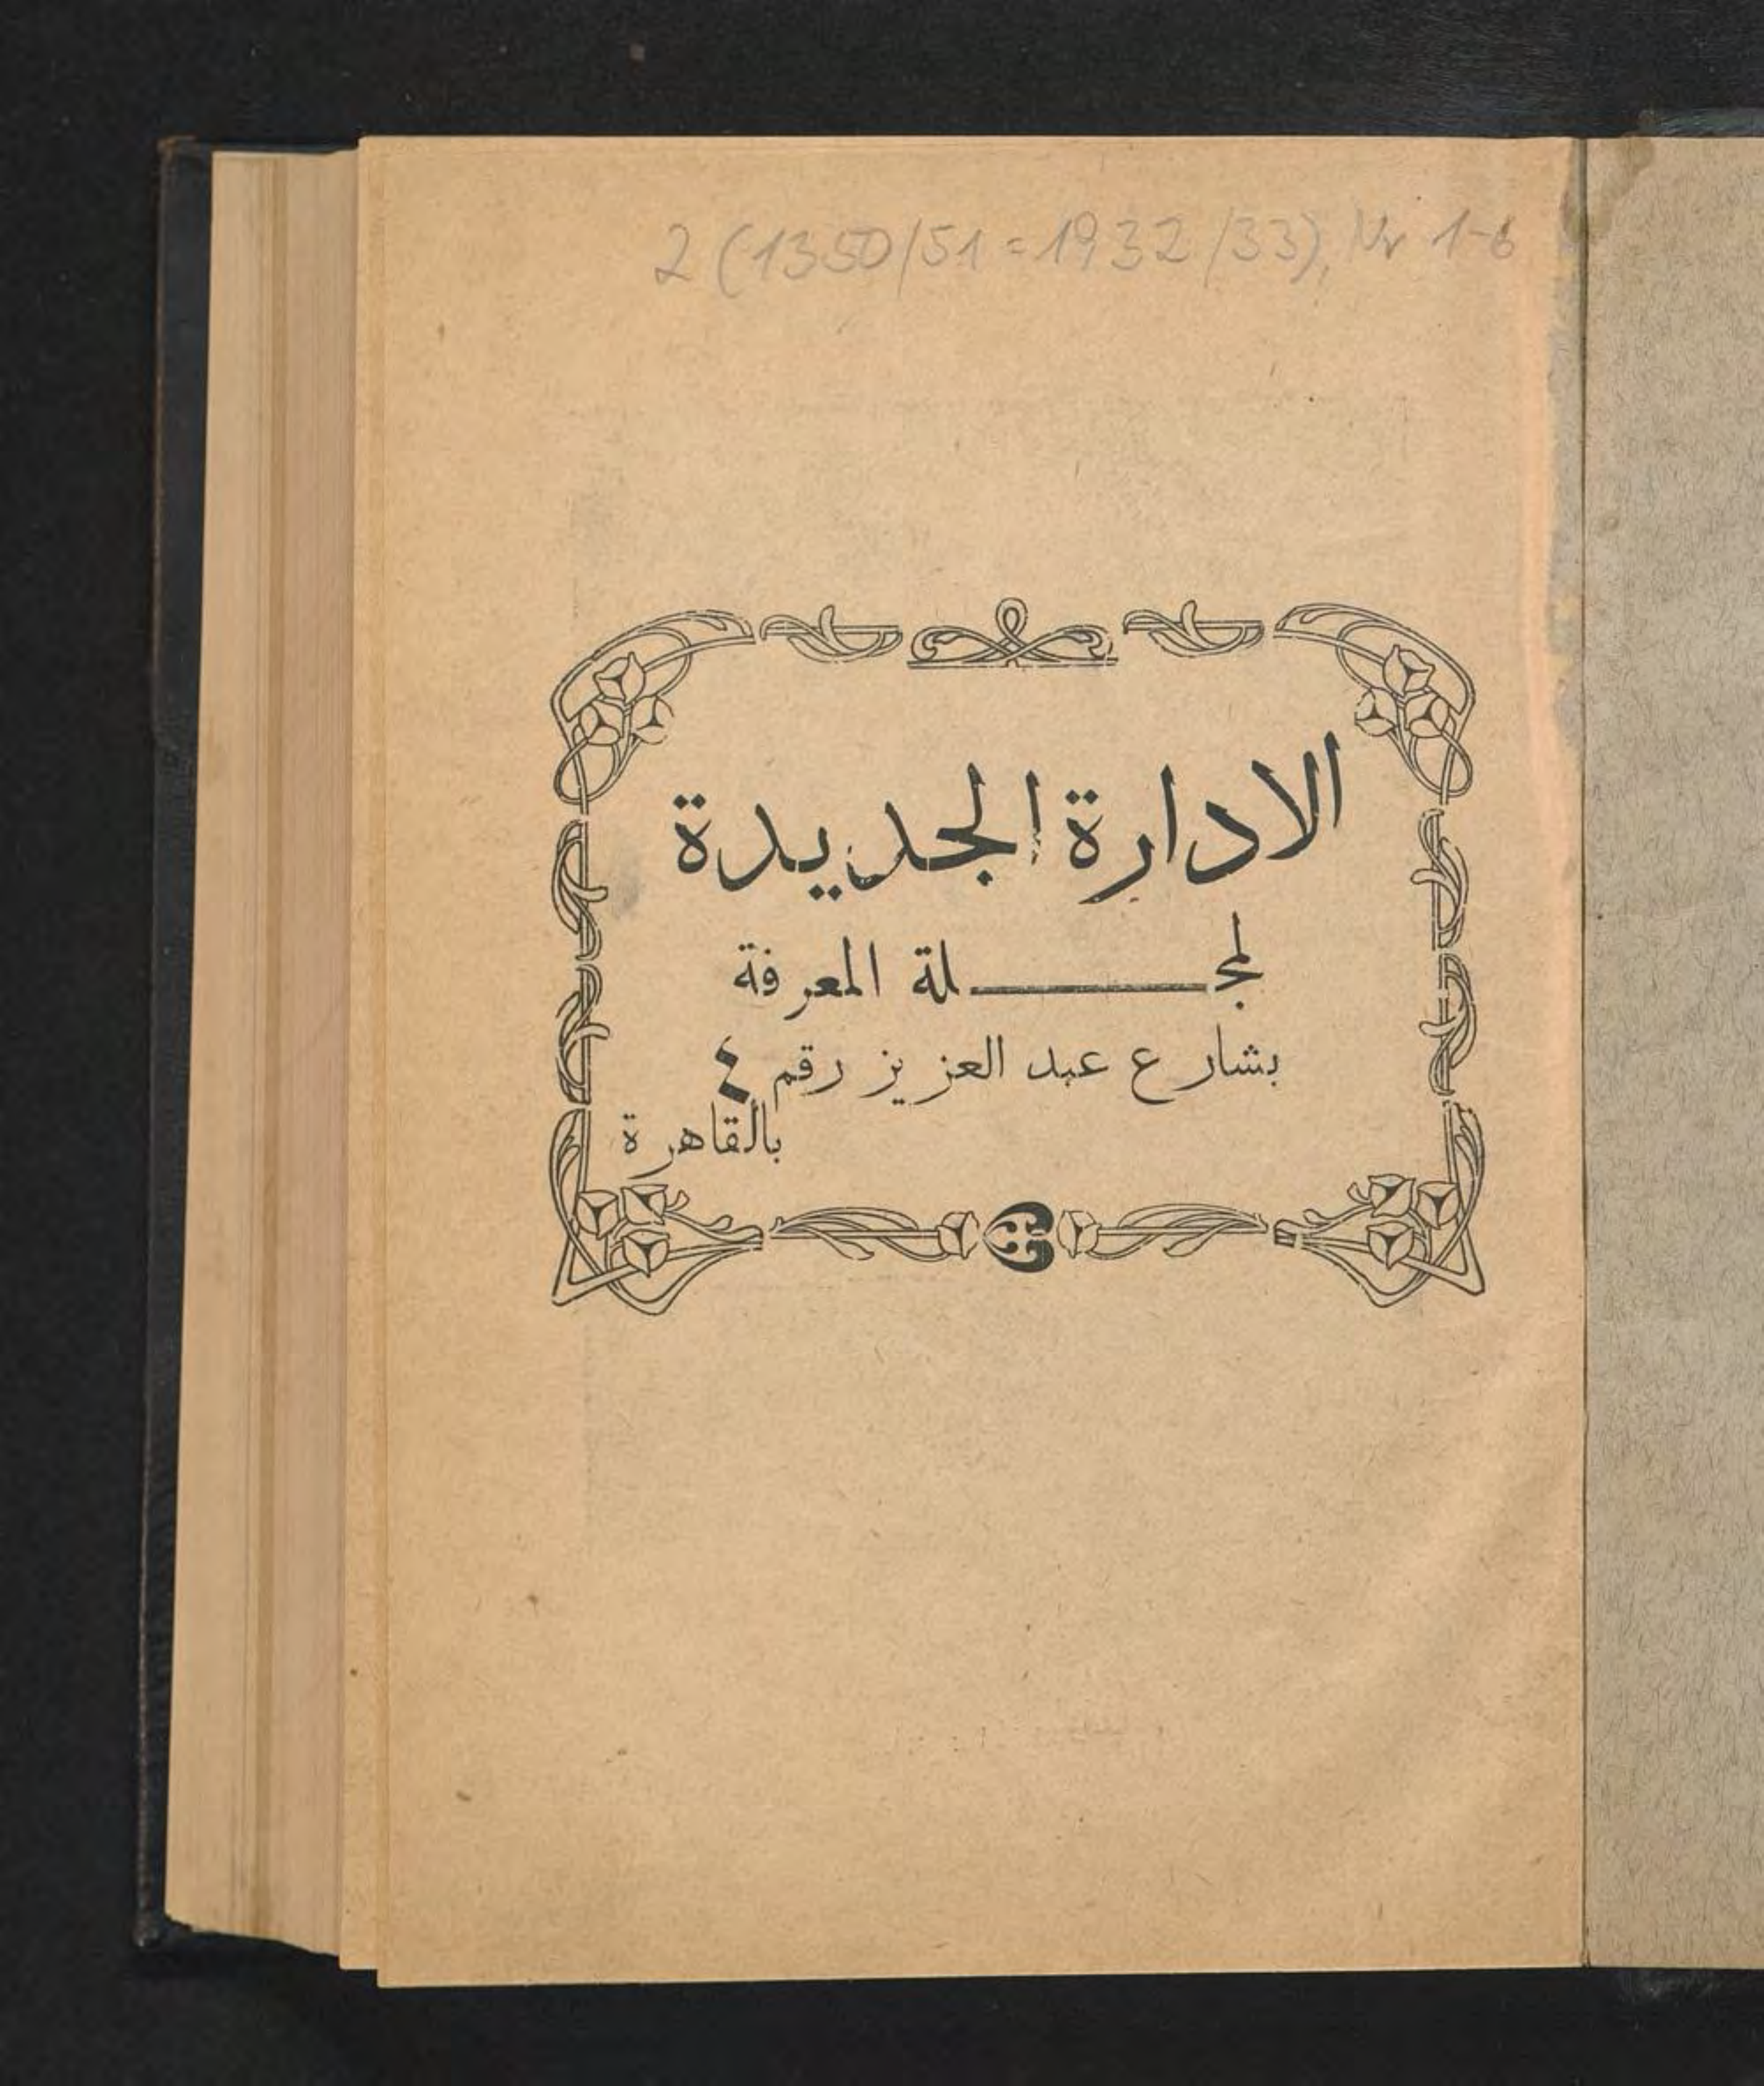 2 (1350/51 = 1932/33), Nr 1-6
الادارة الجديدة
لمجـــــلة المعرفة
بشارع عبد العزيز رقم ٤
بالقاهرة